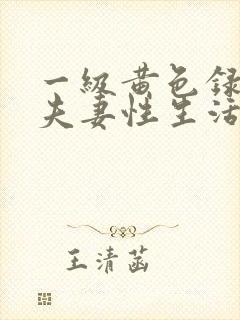 一级黄色録
夫妻性生活
王清菡